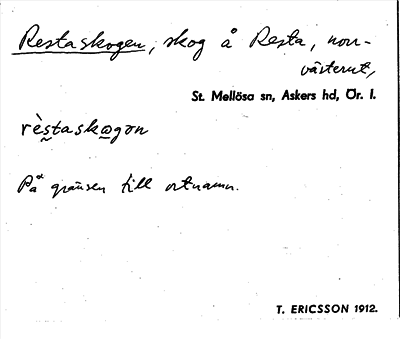 Restaskogen, skog å Resta, norr-
västerut,
St. Mellösa sn, Askers hd, Ör. l.
rèstaskogon
På gränsen till ortnamn.
T. ERICSSON 1912.